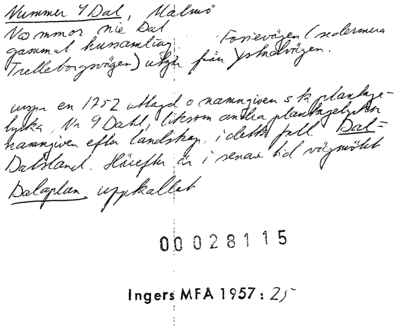 Nummer 9 Dal, Malmö
Nummer nie Dal
gammal hussamling Fosievägen (sedermera
Trelleborgsvägen) utgår från Ystadvägen.
urspr en 1752 utlagd o namngiven s k plantage-
lycka. Nr 9 Dahl, liksom andra plantagelyckor
namngiven efter landskap, i detta fall Dal =
Dalsland. Härefter är i senare tid vägmötet
Dalaplan uppkallat
00028115
Ingers MFA 1957: 25